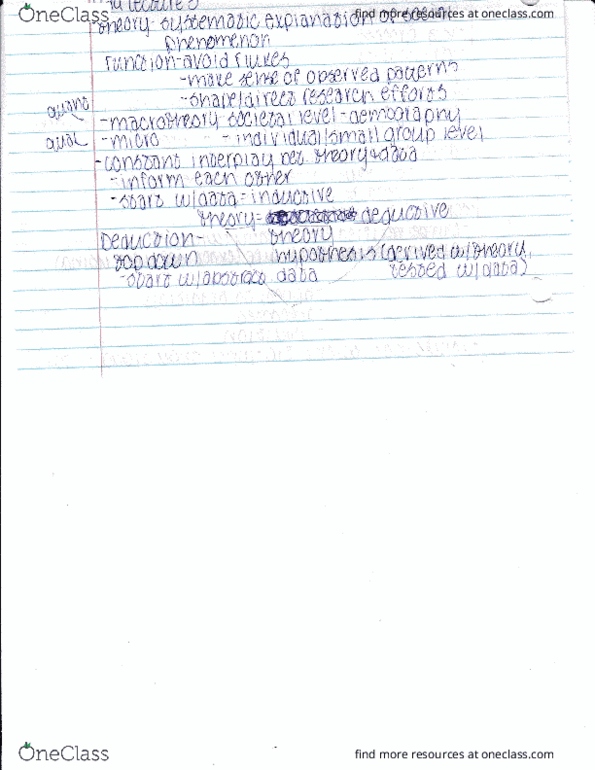 OneClass
find more resources at oneclass.com
lecture 3
theory-systematic explanation of social
phenomenon
Function-avoid flukes
-make sense of observed patterns
-shape/direct research efforts
quant -macrotheory societal level-demography
qual -micro " -individual/small group level
-constant interplay bet theory+data
-inform each other
-start w/data=inductive
theory= deductive
Deduction- theory
top down hypothesis (derived w/theory,
-start w/abstract data tested w/data)
OneClass
find more resources at oneclass.com